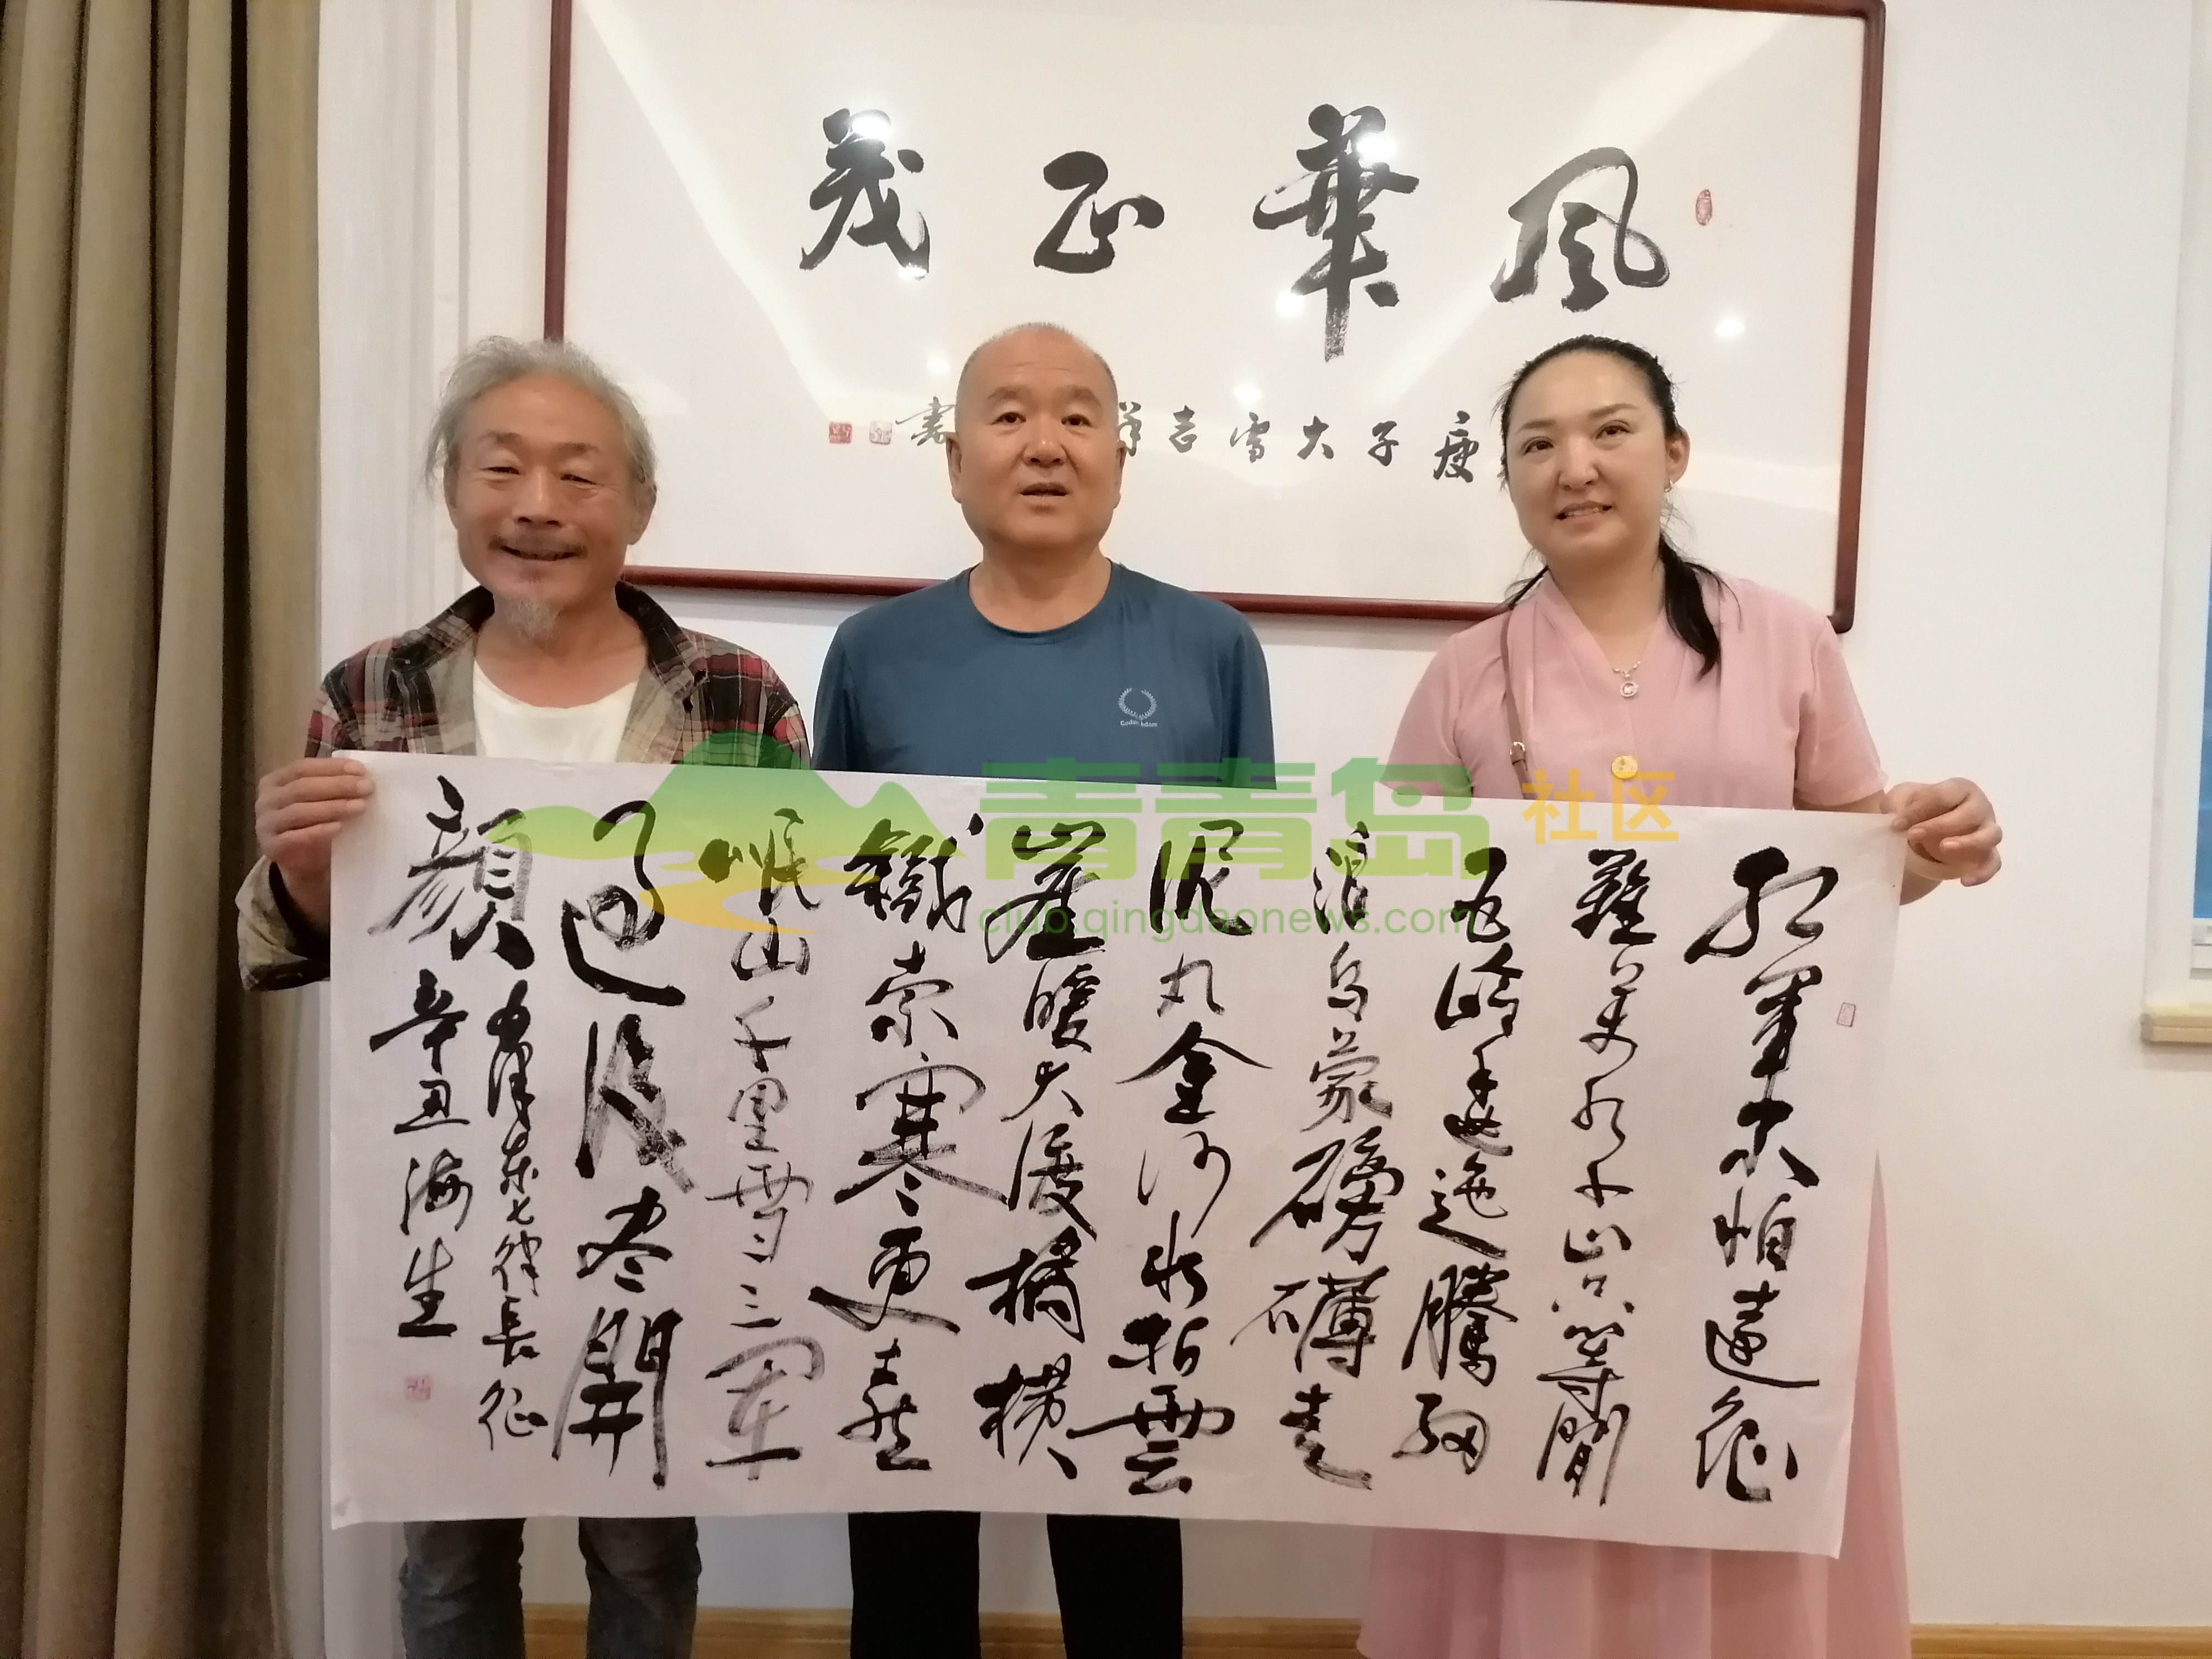 風華正茂
庚子大雪吉祥書
红軍不怕遠征
難萬水千山只等閒
五嶺逶迤騰細
浪烏蒙磅礴走
泥丸金沙水拍雲
崖暖大渡橋橫
鐵索寒更喜
岷山千里雪三軍
過後尽開
顏
毛澤東七律長征
辛丑海生
青青岛社区
club.qingdaonews.com